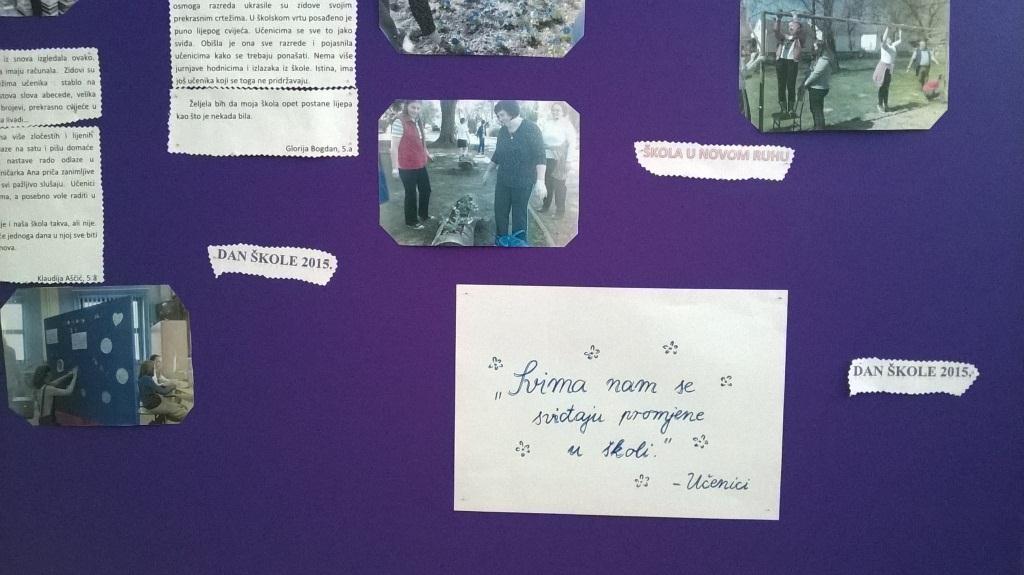 iz snova izgledala ovako,
imaju računala. Zidovi su
učenika stablo na
slova abecede, velika
brojevi, prekrasno cvijeće u
livadi...
više zločestih i lijenih
na satu i pišu domaće
nastave rado odlaze u
Ana priča zanimljive
svi pažljivo slušaju. Učenici
a posebno vole raditi u
je i naša škola takva, ali nije.
jednoga dana u njoj sve biti
Klaudija Aščić, 5.a
osmoga razreda ukrasile su zidove svojim
prekrasnim crtežima. U školskom vrtu posađeno je
puno lijepog cvijeća. Učenicima se sve to jako
sviđa. Obišla je ona sve razrede i pojasnila
učenicima kako se trebaju ponašati. Nema više
jurnjave hodnicima i izlazaka iz škole. Istina, ima
još učenika koji se toga ne pridržavaju.
Željela bih da moja škola opet postane lijepa
kao što je nekada bila.
Glorija Bogdan, 5.a
ŠKOLA U NOVOM RUHU
DAN ŠKOLE 2015.
„Svima nam se
sviđaju promjene
u školi."
- Učenici
DAN ŠKOLE 2015.